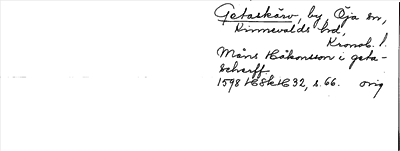 Getaskärv, by, Öja sn,
Kinnevalds hd,
Kronob. l.
Måns Håkonsson i geta-
scherff
1598 HSkH 32, s. 66. orig